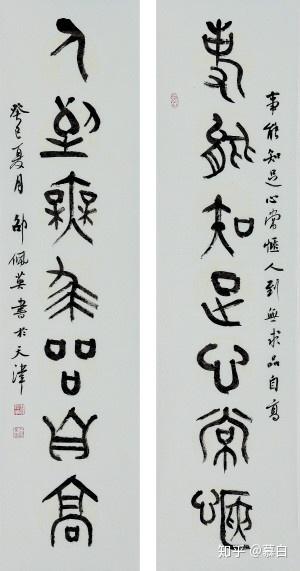 事能知足心常愜人到無求品自高
事能知足心常愜
人到無求品自高
癸巳夏月 邵佩英書於天津
知乎 @慕白